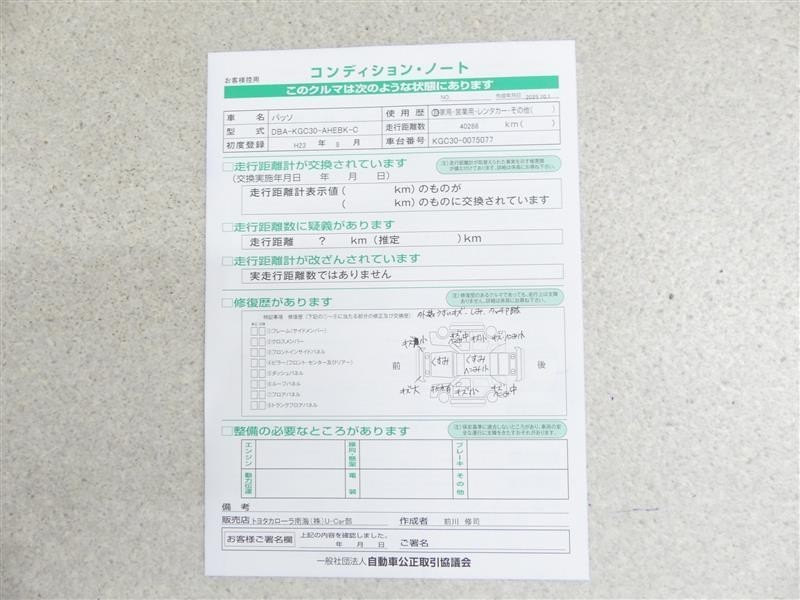 お客様控用
コンディション・ノート
このクルマは次のような状態にあります
NO. 作成年月日 2025.10.1
車名 パッソ 使用歴 自家用・営業用・レンタカー・その他( )
型式 DBA-KGC30-AHEBK-C 走行距離数 40286 km( )
初度登録 H23 年 8 月 車台番号 KGC30-0075077
□走行距離計が交換されています
(交換実施年月日 年 月 日)
走行距離計表示値( km)のものが
( km)のものに交換されています
□走行距離数に疑義があります
走行距離 ? km(推定 )km
□走行距離計が改ざんされています
実走行距離数ではありません
□修復歴があります
①フレーム(サイドメンバー)
②クロスメンバー
③フロントインサイドパネル
④ピラー(フロント・センター及びリアー)
⑤ダッシュパネル
⑥ルーフパネル
⑦フロアパネル
⑧トランクフロアパネル
前 くすみ くすみ 後
ヘコミ小
キズ大 キズ小
□整備の必要なところがあります
エンジン 操向・懸架 ブレーキ
動力伝達 電装 その他
備考
販売店 トヨタカローラ南海(株)U-Car部 作成者 前川 修司
お客様ご署名欄 上記の内容を確認しました。
年 月 日 ご署名
一般社団法人 自動車公正取引協議会